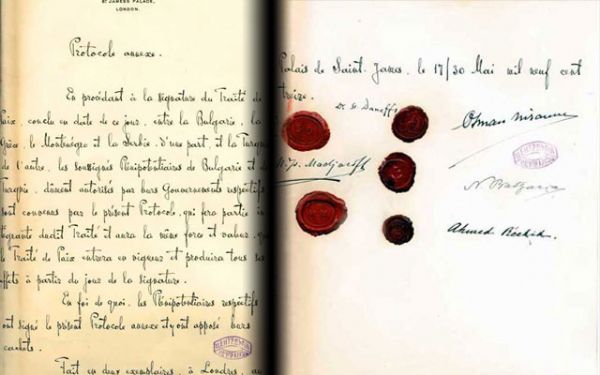 ST JAMES'S PALACE,
LONDON.
Protocole annexe.
En procédant à la signature du Traité de
Paix, conclu en date de ce jour, entre la Bulgarie, la
Grèce, le Monténégro et la Serbie d'une part, et la Turquie
de l'autre, les soussignés Plénipotentiaires de Bulgarie et de
Turquie, dûment autorisés par leurs Gouvernements respectifs
sont convenus par le présent Protocole, qui fera partie in-
tégrante dudit Traité et aura la même force et valeur, que
le Traité de Paix entrera en vigueur et produira tous ses
effets à partir du jour de la signature.
En foi de quoi, les Plénipotentiaires respectifs
ont signé le présent Protocole annexe et y ont apposé leurs
cachets.
Fait en deux exemplaires, à Londres, au
Palais de Saint. James, le 17/30 Mai mil neuf cent
treize.
Dr. S. Daneff
Osman Nizami
M. Iv. Madjaroff
N Batzaria
Ahmed Réchid